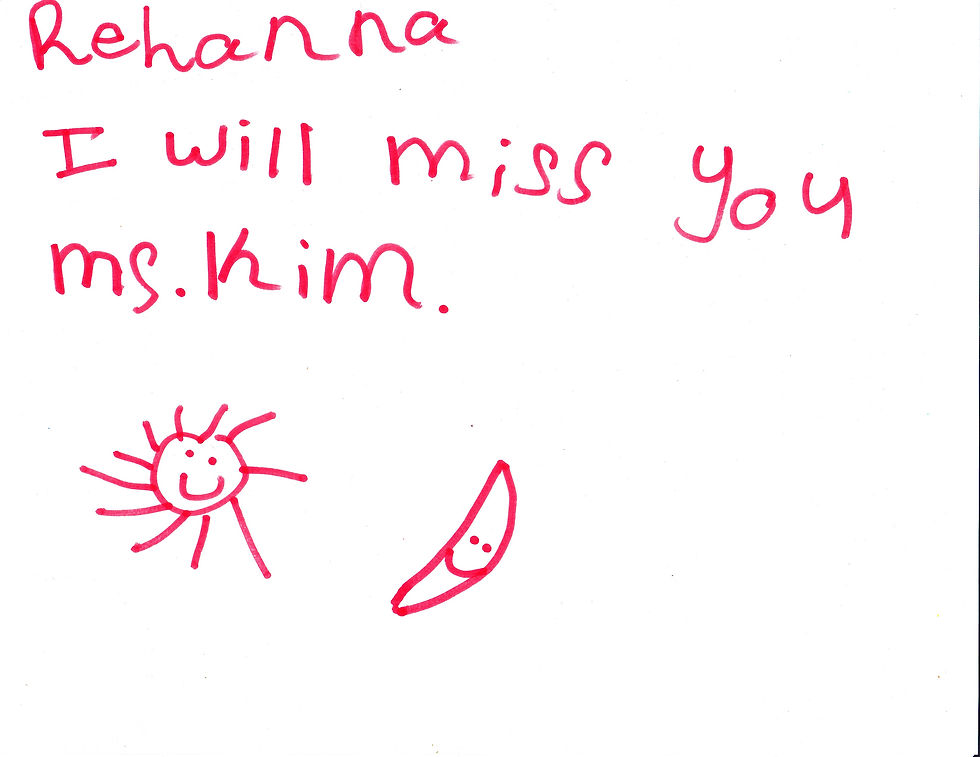 Rehanna
I will miss you
ms. Kim.